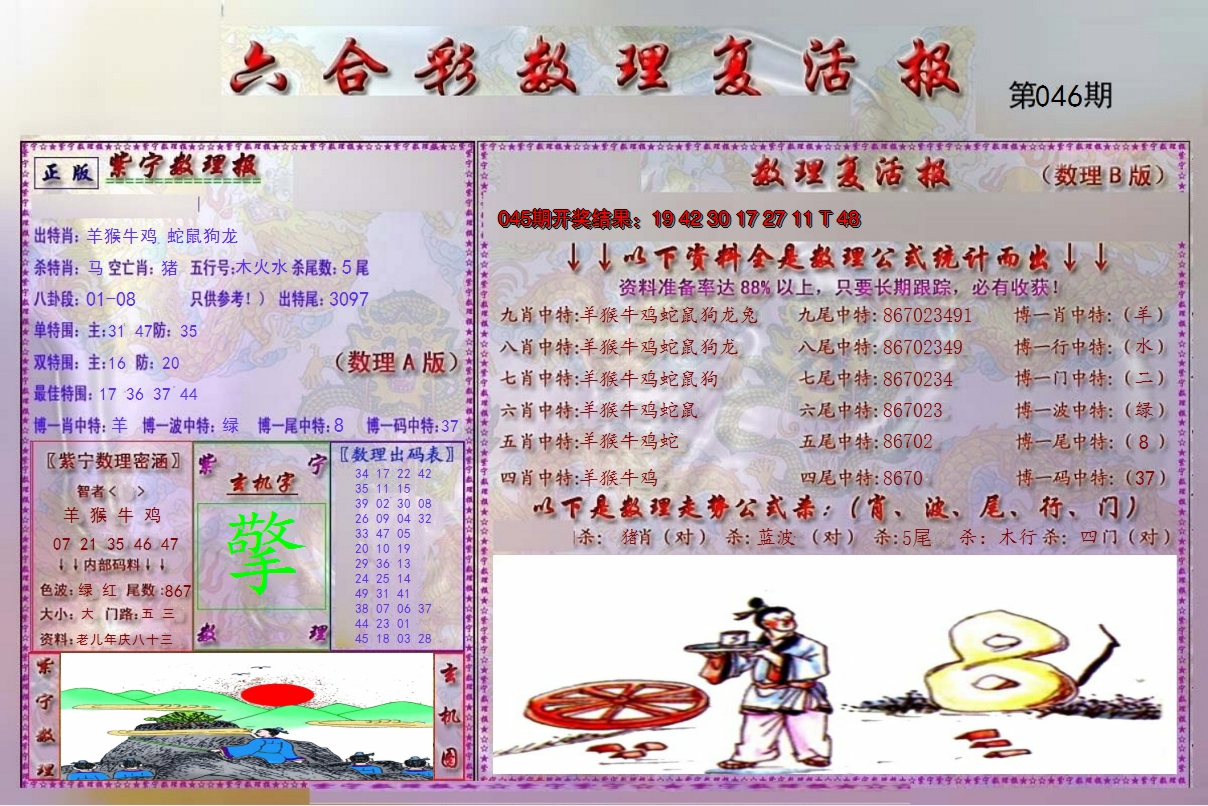 六合彩数理复活报
第046期
正版 紫宁数理报
出特肖: 羊猴牛鸡 蛇鼠狗龙
杀特肖: 马 空亡肖: 猪 五行号:木火水 杀尾数: 5 尾
八卦段: 01-08 只供参考! ) 出特尾: 3097
单特围: 主:31 47防: 35
双特围: 主:16 防: 20
(数理A版)
最佳特围: 17 36 37 44
博一肖中特: 羊 博一波中特: 绿 博一尾中特:8 博一码中特:37
〖紫宁数理密涵〗
智者< >
羊 猴 牛 鸡
07 21 35 46 47
↓↓内部码料↓↓
色波: 绿 红 尾数:867
大小: 大 门路: 五 三
资料: 老儿年庆八十三
紫 宁
玄机字
擎
数 理
〖数理出码表〗
34 17 22 42
35 11 15
39 02 30 08
26 09 04 32
33 47 05
20 10 19
29 36 13
24 25 14
49 31 41
38 07 06 37
44 23 01
45 18 03 28
紫宁数理
玄机图
数理复活报 (数理B版)
045期开奖结果: 19 42 30 17 27 11 T 48
↓↓以下资料全是数理公式统计而出↓↓
资料准备率达 88% 以上，只要长期跟踪，必有收获!
九肖中特:羊猴牛鸡蛇鼠狗龙兔 九尾中特: 867023491 博一肖中特: (羊)
八肖中特:羊猴牛鸡蛇鼠狗龙 八尾中特: 86702349 博一行中特: (水)
七肖中特:羊猴牛鸡蛇鼠狗 七尾中特: 8670234 博一门中特: (二)
六肖中特:羊猴牛鸡蛇鼠 六尾中特: 867023 博一波中特: (绿)
五肖中特:羊猴牛鸡蛇 五尾中特: 86702 博一尾中特: ( 8 )
四肖中特:羊猴牛鸡 四尾中特: 8670 博一码中特: (37)
以下是数理走势公式杀: (肖、波、尾、行、门)
杀: 猪肖 (对) 杀: 蓝波 (对) 杀: 5尾 杀: 木行 杀: 四门 (对)
8